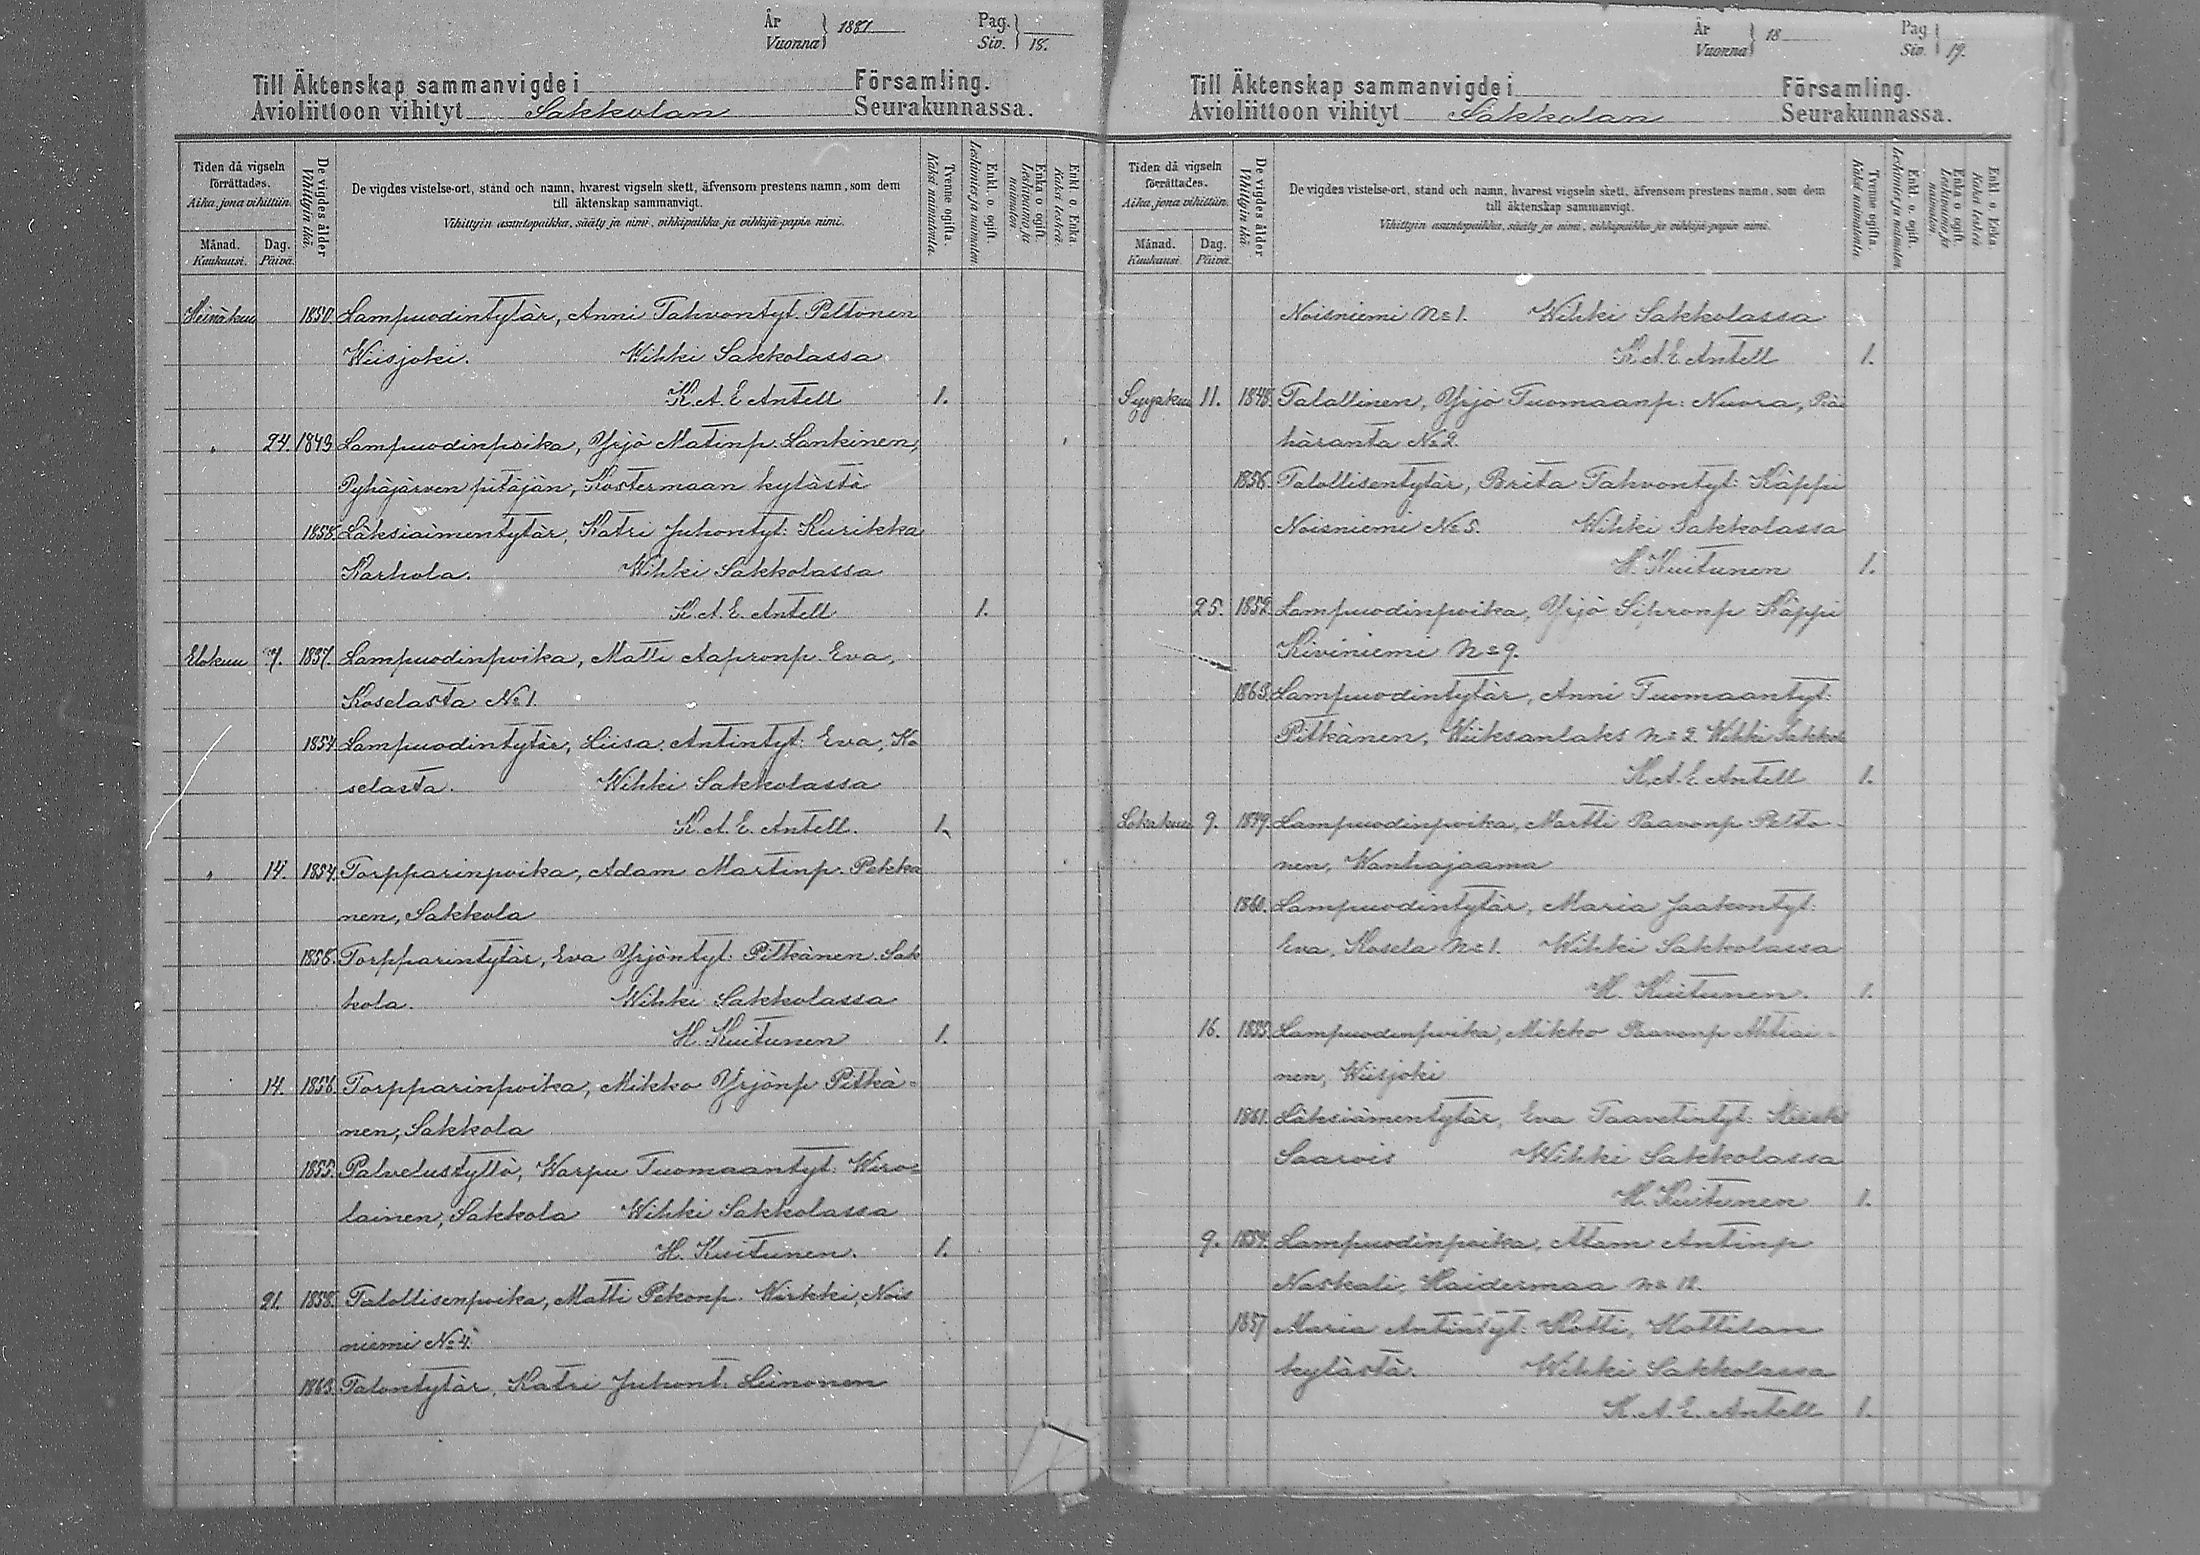 År
Vuonna } 1881
Pag.
Siv. } 18.
Till Äktenskap sammanvigde i Församling.
Avioliittoon vihityt Sakkolan Seurakunnassa.
Tiden då vigseln förrättades.
Aika, jona vihittiin.
Månad.
Kuukausi.
Dag.
Päivä.
De vigdes ålder
Vihittyin ikä.
De vigdes vistelse-ort, stånd och namn, hvarest vigseln skett, äfvensom prestens namn, som dem
till äktenskap sammanvigt.
Vihittyin asuntopaikka, sääty ja nimi, vihkipaikka ja vihkijä-papin nimi.
Tvenne ogifta.
Kaksi naimatonta.
Enkl. o. ogift.
Leskimies ja naimaton.
Enka o. ogift.
Leskivaimo ja naimaton.
Enkl. o. Enka
Kaksi leskeä.
Heinäkuu 1850. Lampuodintytär, Anni Tahvontyt. Peltonen
Wiisjoki. Wihki Sakkolassa
K. A. E Antell 1.
" 24. 1843 Lampuodinpoika, Yrjö Matinp. Lankinen,
Pyhäjärven pitäjän, Kostermaan kylästä
1858. Läksiäimentytär, Katri Juhontyt: Kurikka
Karhola. Wihki Sakkolassa
K. A. E. Antell 1.
Elokuu 7. 1857. Lampuodinpoika, Matti Aapronp. Eva,
Koselasta No 1.
1854. Lampuodintytär, Liisa Antintyt: Eva, Ko
selasta. Wihki Sakkolassa
K. A. E. Antell. 1.
" 14. 1854. Torpparinpoika, Adam Martinp. Pekka
nen, Sakkola
1858. Torpparintytär, Eva Yrjöntyt: Pitkänen Sak
kola. Wihki Sakkolassa
H. Kuitunen 1.
14. 1856. Torpparinpoika, Mikko Yrjönp Pitkä-
nen, Sakkola
1855. Palvelustyttö, Warpu Tuomaantyt: Wiro-
lainen, Sakkola Wihki Sakkolassa
H. Kuitunen. 1.
21. 1858. Talollisenpoika, Matti Pekonp. Wirkki, Nois
niemi No 4.
1863. Talontytär, Katri Juhont. Liinonen
År
Vuonna } 18
Pag
Siv. } 19.
Till Äktenskap sammanvigde i Församling.
Avioliittoon vihityt Sakkolan Seurakunnassa.
Tiden då vigseln förrättades.
Aika, jona vihittiin.
Månad.
Kuukausi.
Dag.
Päivä.
De vigdes ålder
Vihittyin ikä.
De vigdes vistelse-ort, stånd och namn, hvarest vigseln skett, äfvensom prestens namn, som dem
till äktenskap sammanvigt.
Vihittyin asuntopaikka, sääty ja nimi, vihkipaikka ja vihkijä-papin nimi.
Tvenne ogifta.
Kaksi naimatonta.
Enkl. o. ogift.
Leskimies ja naimaton.
Enka o. ogift.
Leskivaimo ja naimaton
Enkl. o. Enka
Kaksi leskeä.
Noisniemi No 1. Wihki Sakkolassa
K. A. E. Antell 1.
Syyskuu 11. 1848. Talallinen, Yrjö Tuomaanp: Nuora, Röi
häranta No 2.
1856. Talollisentytär, Brita Tahvontyt: Käppi
Noisniemi No 5. Wihki Sakkolassa
H. Kuitunen 1.
25. 1852. Lampuodinpoika, Yrjö Sipronp Käppi
Kiviniemi No 9.
1863. Lampuodintytär, Anni Tuomaantyt:
Pitkänen, Wiiksanlaks No 2 Wihki Sakkol
K. A. E Antell 1.
Lokakuu 9. 1859. Lampuodinpoika, Martti Paavonp Pelto-
nen, Wanhajaama
1860. Lampuodintytär, Maria Jaakontyt:
Eva, Kosela No 1. Wihki Sakkolassa
H. Kuitunen. 1.
16. 1855. Lampuodinpoika, Mikko Paavonp Ahtiai-
nen, Wiisjoki
1861. Läksiämentytär, Eva Taavetintyt: Kiiski
Saarois Wihki Sakkolassa
H. Kuitunen 1.
9. 1854. Lampuodinpoika, Atam Antinp
Naskali, Haidermaa No 12.
1857 Maria Antintyt: Kotti, Kottilan
kylästä. Wihki Sakkolassa
K. A. E. Antell 1.